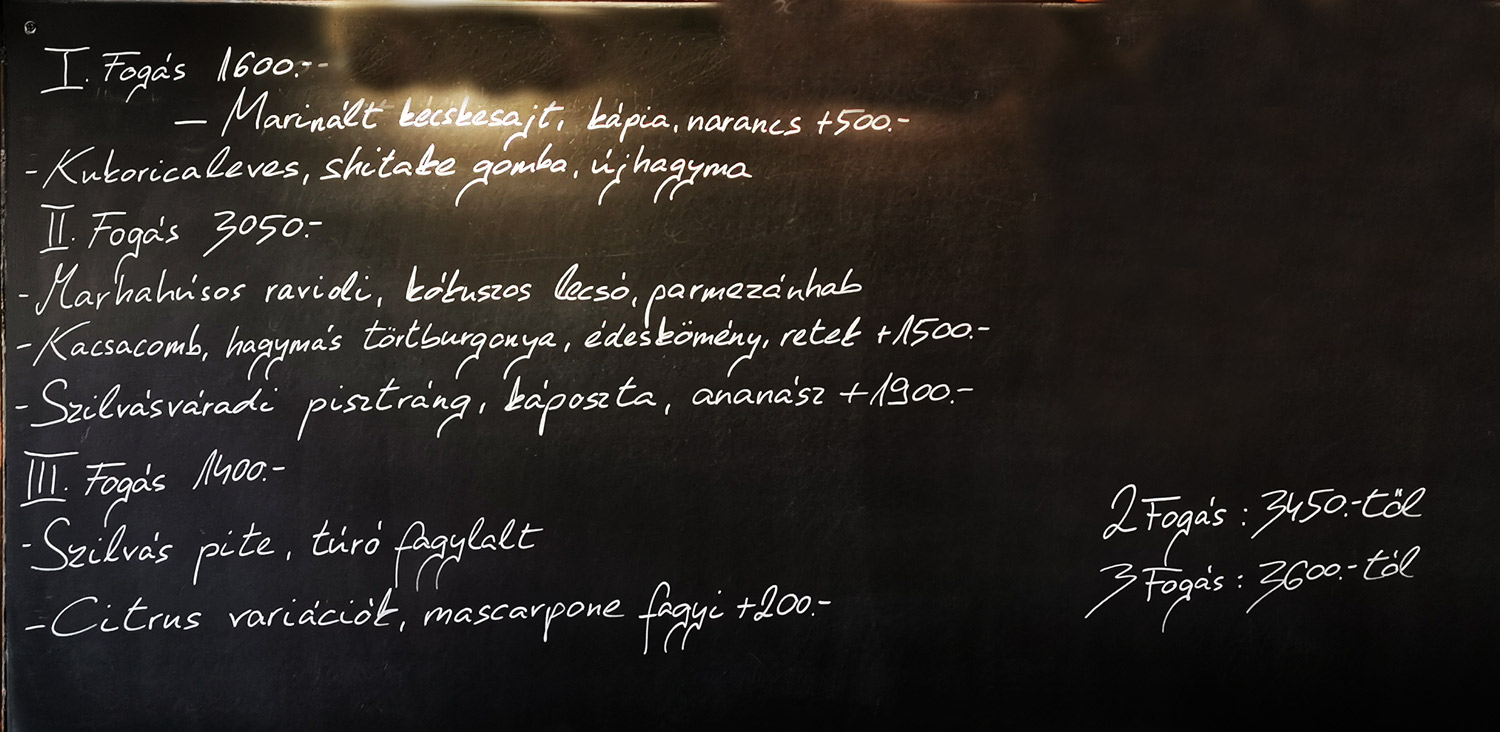 I. Fogás 1600.--
- Marinált kecskesajt, kápia, narancs +500.-
- Kukoricaleves, shitake gomba, újhagyma
II. Fogás 3050.-
- Marhahúsos ravioli, kókuszos lecsó, parmezánhab
- Kacsacomb, hagymás törtburgonya, édeskömény, retek +1500.-
- Szilvásváradi pisztráng, káposzta, ananász +1900.-
III. Fogás 1400.-
- Szilvás pite, túró fagylalt
- Citrus variációk, mascarpone fagyi +200.-
2 Fogás : 3450.-től
3 Fogás : 3600.-tól